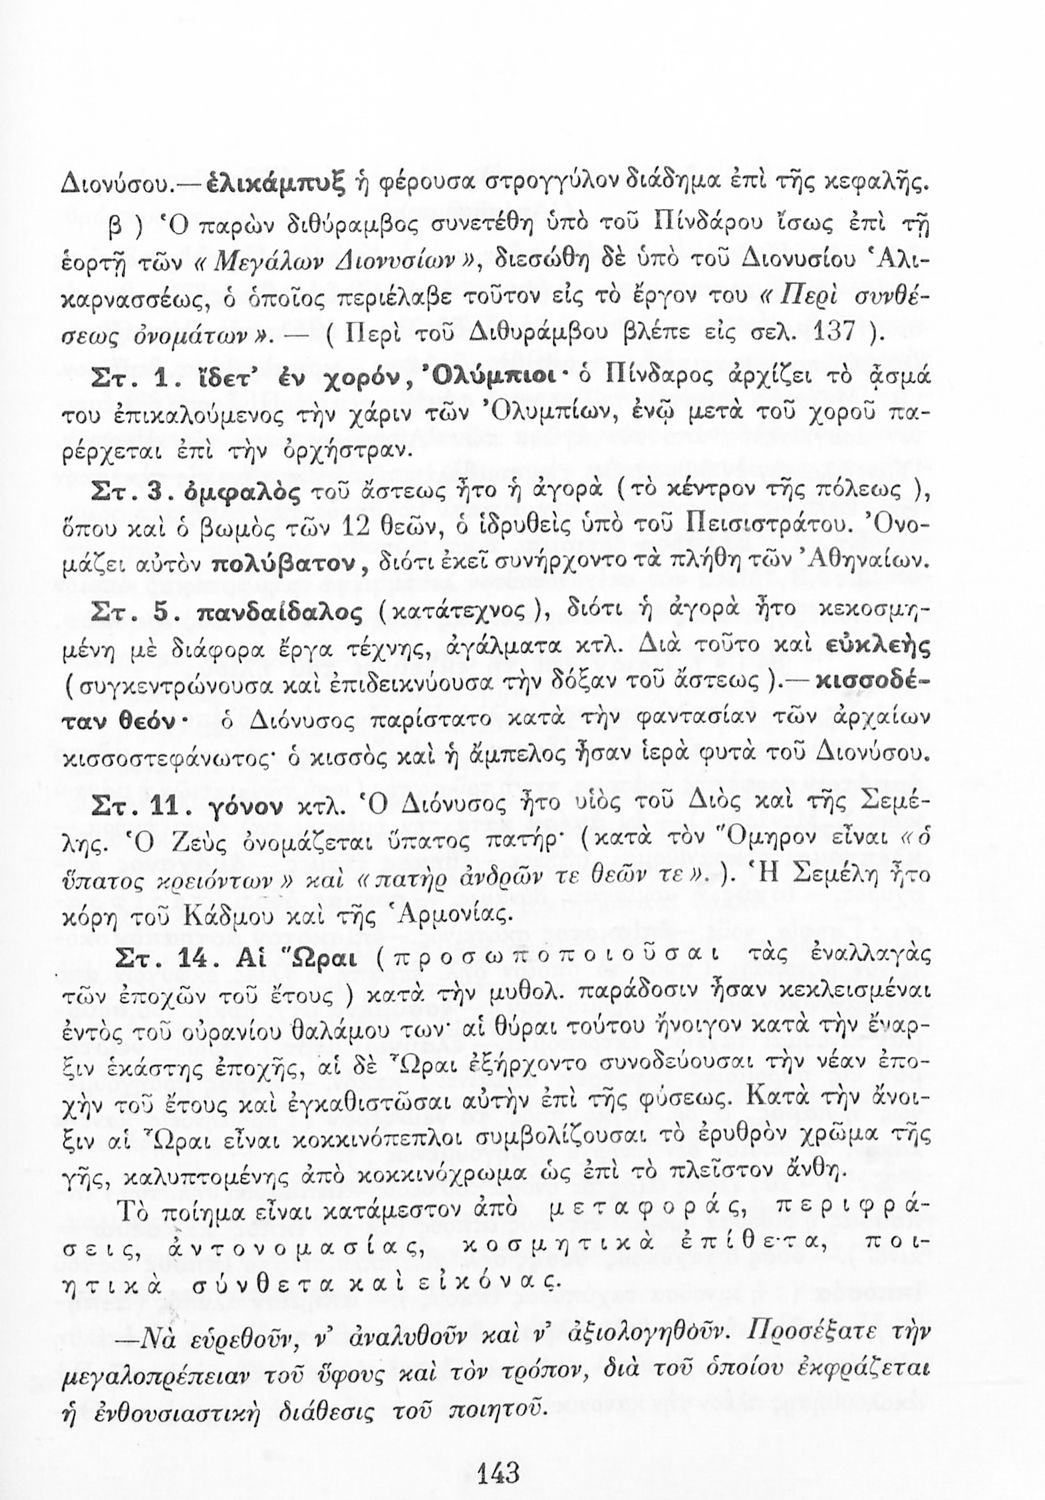 Διονύσου.—ἑλικάμπυξ ἡ φέρουσα στρογγύλον διάδημα ἐπὶ τῆς κεφαλῆς.
β ) Ὁ παρὼν διθύραμβος συνετέθη ὑπὸ τοῦ Πίνδάρου ἴσως ἐπὶ τῇ
ἑορτῇ τῶν « Μεγάλων Διονυσίων », διεσώθη δὲ ὑπὸ τοῦ Διονυσίου Ἁλι-
καρνασσέως, ὁ ὁποῖος περιέλαβε τοῦτον εἰς τὸ ἔργον του « Περὶ συνθέ-
σεως ὀνομάτων ». — ( Περὶ τοῦ Διθυράμβου βλέπε εἰς σελ. 137 ).
Στ. 1. ἴδετ’ ἐν χορόν, Ὀλύμπιοι· ὁ Πίνδαρος ἀρχίζει τὸ ᾆσμά
του ἐπικαλούμενος τὴν χάριν τῶν Ὀλυμπίων, ἐνῷ μετὰ τοῦ χοροῦ πα-
ρέρχεται ἐπὶ τὴν ὀρχήστραν.
Στ. 3. ὀμφαλὸς τοῦ ἄστεως ἦτο ἡ ἀγορὰ ( τὸ κέντρον τῆς πόλεως ),
ὅπου καὶ ὁ βωμὸς τῶν 12 θεῶν, ὁ ἱδρυθεὶς ὑπὸ τοῦ Πεισιστράτου. Ὀνο-
μάζει αὐτὸν πολύβατον, διότι ἐκεῖ συνήρχοντο τὰ πλήθη τῶν Ἀθηναίων.
Στ. 5. πανδαίδαλος ( κατάτεχνος ), διότι ἡ ἀγορὰ ἦτο κεκοσμη-
μένη μὲ διάφορα ἔργα τέχνης, ἀγάλματα κτλ. Διὰ τοῦτο καὶ εὐκλεὴς
( συγκεντρώνουσα καὶ ἐπιδεικνύουσα τὴν δόξαν τοῦ ἄστεως ).— κισσοδέ-
ταν θεόν· ὁ Διόνυσος παρίστατο κατὰ τὴν φαντασίαν τῶν ἀρχαίων
κισσοστεφάνωτος· ὁ κισσὸς καὶ ἡ ἄμπελος ἦσαν ἱερὰ φυτὰ τοῦ Διονύσου.
Στ. 11. γόνον κτλ. Ὁ Διόνυσος ἦτο υἱὸς τοῦ Διὸς καὶ τῆς Σεμέ-
λης. Ὁ Ζεὺς ὀνομάζεται ὕπατος πατήρ· ( κατὰ τὸν Ὅμηρον εἶναι « ὁ
ὕπατος κρειόντων » καὶ « πατὴρ ἀνδρῶν τε θεῶν τε ». ). Ἡ Σεμέλη ἦτο
κόρη τοῦ Κάδμου καὶ τῆς Ἁρμονίας.
Στ. 14. Αἱ Ὧραι ( προσωποποιοῦσαι τὰς ἐναλλαγὰς
τῶν ἐποχῶν τοῦ ἔτους ) κατὰ τὴν μυθολ. παράδοσιν ἦσαν κεκλεισμέναι
ἐντὸς τοῦ οὐρανίου θαλάμου των· αἱ θύραι τούτου ἤνοιγον κατὰ τὴν ἔναρ-
ξιν ἑκάστης ἐποχῆς, αἱ δὲ Ὧραι ἐξήρχοντο συνοδεύουσαι τὴν νέαν ἐπο-
χὴν τοῦ ἔτους καὶ ἐγκαθιστῶσαι αὐτὴν ἐπὶ τῆς φύσεως. Κατὰ τὴν ἄνοι-
ξιν αἱ Ὧραι εἶναι κοκκινόπεπλοι συμβολίζουσαι τὸ ἐρυθρὸν χρῶμα τῆς
γῆς, καλυπτομένης ἀπὸ κοκκινόχρωμα ὡς ἐπὶ τὸ πλεῖστον ἄνθη.
Τὸ ποίημα εἶναι κατάμεστον ἀπὸ μεταφοράς, περιφρά-
σεις, ἀντονομασίας, κοσμητικὰ ἐπίθετα, ποι-
ητικὰ σύνθετα καὶ εἰκόνας.
—Νὰ εὑρεθοῦν, ν’ ἀναλυθοῦν καὶ ν’ ἀξιολογηθοῦν. Προσέξατε τὴν
μεγαλοπρέπειαν τοῦ ὕφους καὶ τὸν τρόπον, διὰ τοῦ ὁποίου ἐκφράζεται
ἡ ἐνθουσιαστικὴ διάθεσις τοῦ ποιητοῦ.
143